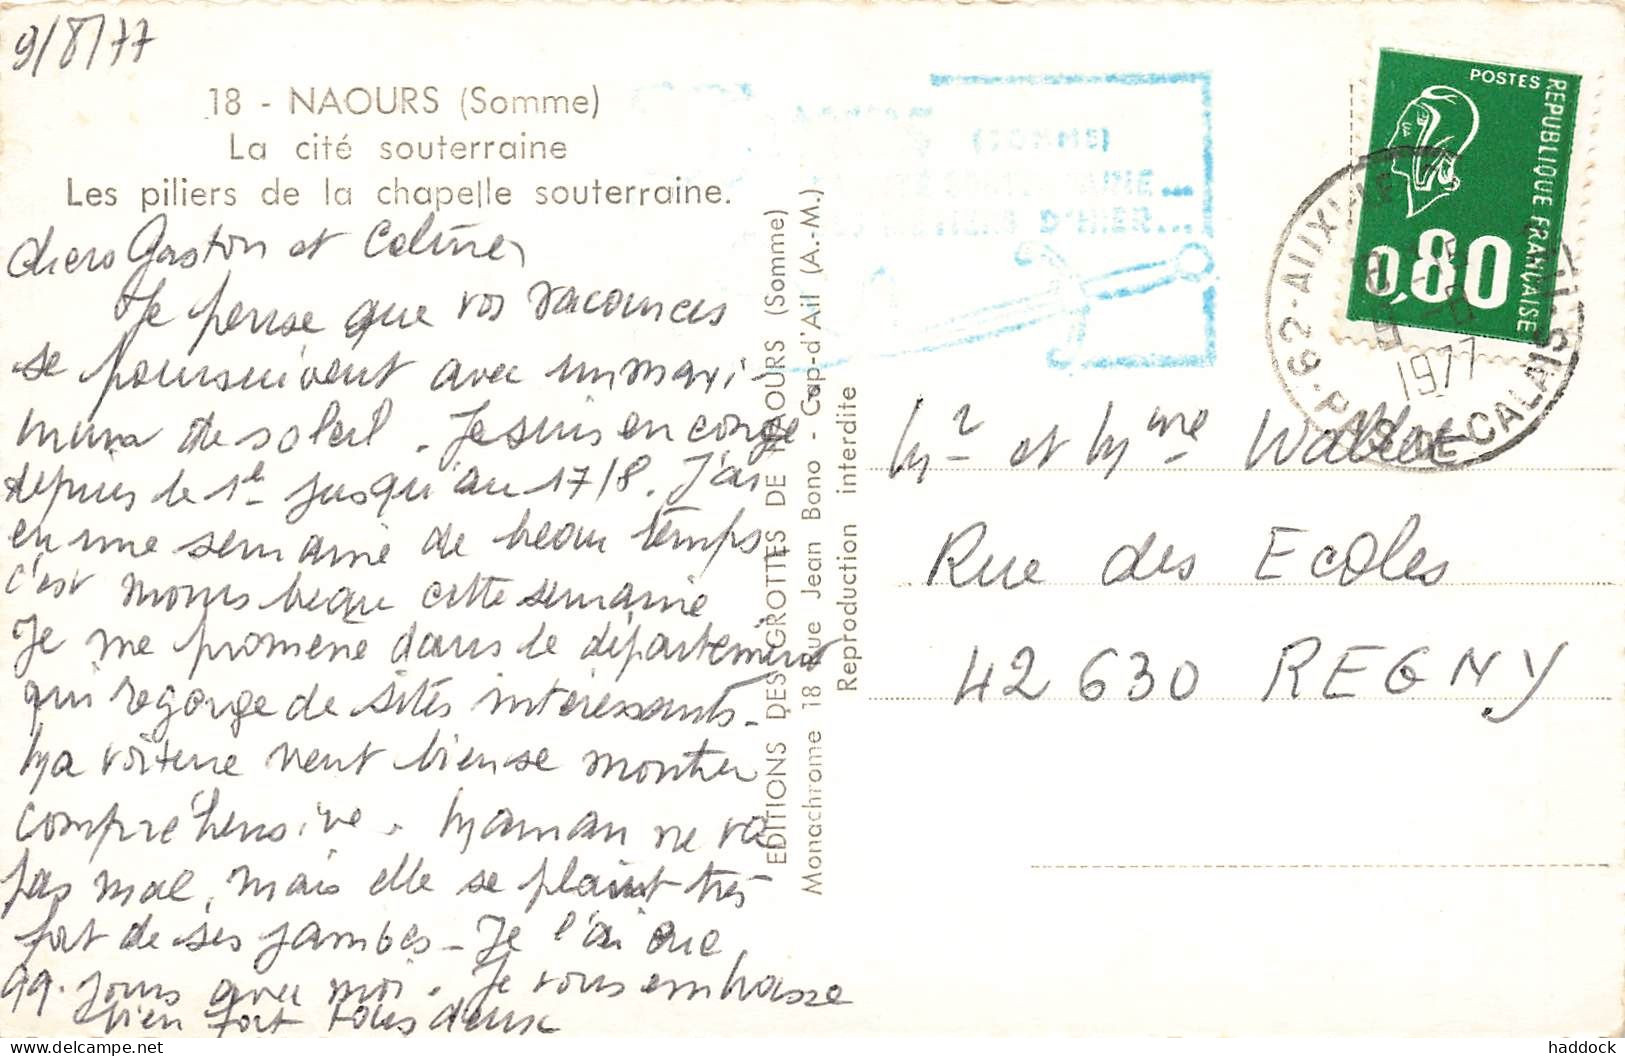 9/8/77
18 - NAOURS (Somme)
La cité souterraine
Les piliers de la chapelle souterraine.
chers Gaston et
Je pense que vos vacances
se poursuivent avec un maxi-
mum de soleil. Je suis en congé
depuis le 1er jusqu'au 17/8. J'ai
eu une semaine de beau temps
c'est moins beau cette semaine
Je me promène dans le département
qui regorge de sites intéressants-
Ma voiture veut bien se montrer
compréhensive. Maman ne va
pas mal, mais elle se plaint très
fort de ses jambes - Je l'ai eue
qq. jours avec moi. Je vous embrasse
bien fort tous deux
EDITIONS DES GROTTES DE NAOURS (Somme)
Monachrome 18 Rue Jean Bono - Cap-d'Ail (A.-M.)
Reproduction interdite
POSTES
REPUBLIQUE FRANÇAISE
0,80
62 - AUXI-LE-
1977
PAS DE CALAIS
Mr et Mme
Rue des Ecoles
42 630 REGNY
haddock